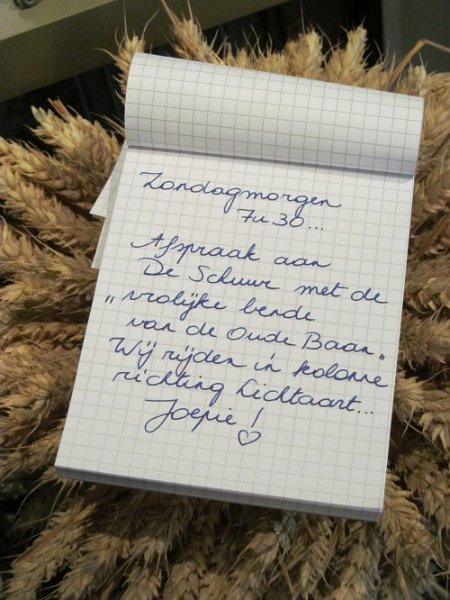 Zondagmorgen
7u30...
Afspraak aan
De Schuur met de
„vrolijke bende
van de Oude Baan„
Wij rijden in kolonne
richting Lichtaart...
Joepie! ♡